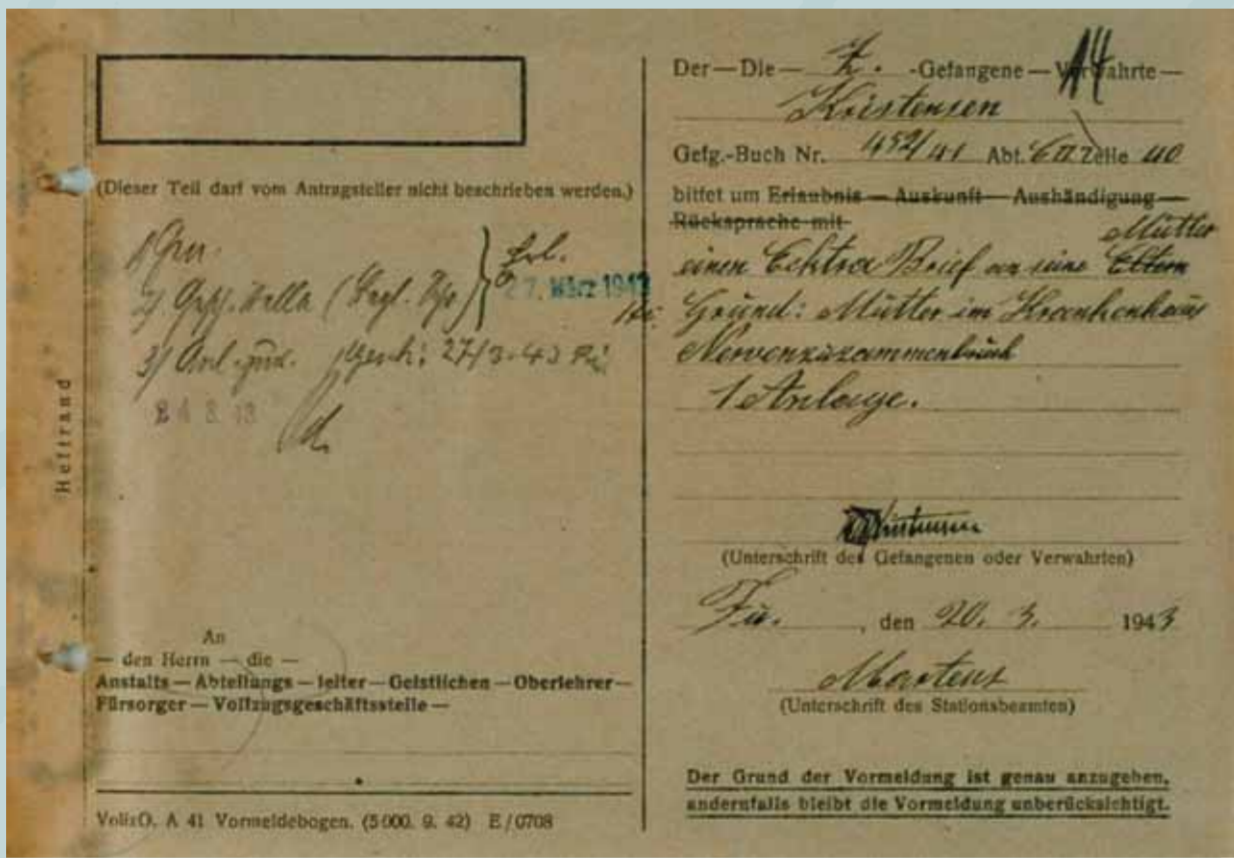 (Dieser Teil darf vom Antragsteller nicht beschrieben werden.)
2)
27. März 1943
3) 27/3.43
24 3 43
Heftrand
An
— den Herrn — die —
Anstalts — Abteilungs — leiter — Geistlichen — Oberlehrer —
Fürsorger — Vollzugsgeschäftsstelle —
VollzO. A 41 Vormeldebogen. (5000. 9. 42) E/0708
Der — Die — Z. -Gefangene — Verwahrte —
Kristensen
Gefg.-Buch Nr. 452/41 Abt. Zelle 40
bittet um Erlaubnis — Auskunft — Aushändigung —
Rücksprache mit
Mutter
einen Ecktra Brief an seine Eltern
Grund: Mutter im Krankenhaus
Nervenzusammenbruch
1 Anlage.
Kristensen
(Unterschrift des Gefangenen oder Verwahrten)
Fu., den 20. 3. 1943
Martens
(Unterschrift des Stationsbeamten)
Der Grund der Vormeldung ist genau anzugeben,
andernfalls bleibt die Vormeldung unberücksichtigt.